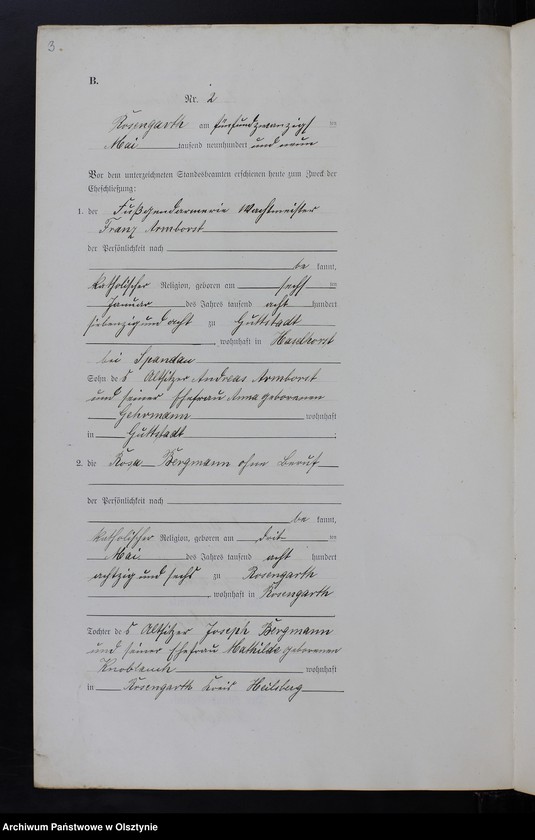 3.
B.
Nr. 2
Rosengarth am fünfundzwanzigsten
Mai tausend neunhundert und neun
Vor dem unterzeichneten Standesbeamten erschienen heute zum Zweck der
Eheschließung:
1. der Fußgendarmerie Wachtmeister
Franz Armborst
der Persönlichkeit nach
be kannt,
katholischer Religion, geboren am sechs ten
Januar des Jahres tausend acht hundert
siebenzig und acht zu Guttstadt
wohnhaft in Haselhorst
bei Spandau
Sohn des Altsitzer Andreas Armborst
und seiner Ehefrau Anna geborenen
Gehrmann wohnhaft
in Guttstadt
2. die Rosa Bergmann ohne Beruf
der Persönlichkeit nach
be kannt,
katholischer Religion, geboren am drit ten
Mai des Jahres tausend acht hundert
achtzig und sechs zu Rosengarth
wohnhaft in Rosengarth
Tochter des Altsitzer Joseph Bergmann
und seiner Ehefrau Mathilde geborenen
Knoblauch wohnhaft
in Rosengarth Kreis Heilsberg
Archiwum Państwowe w Olsztynie